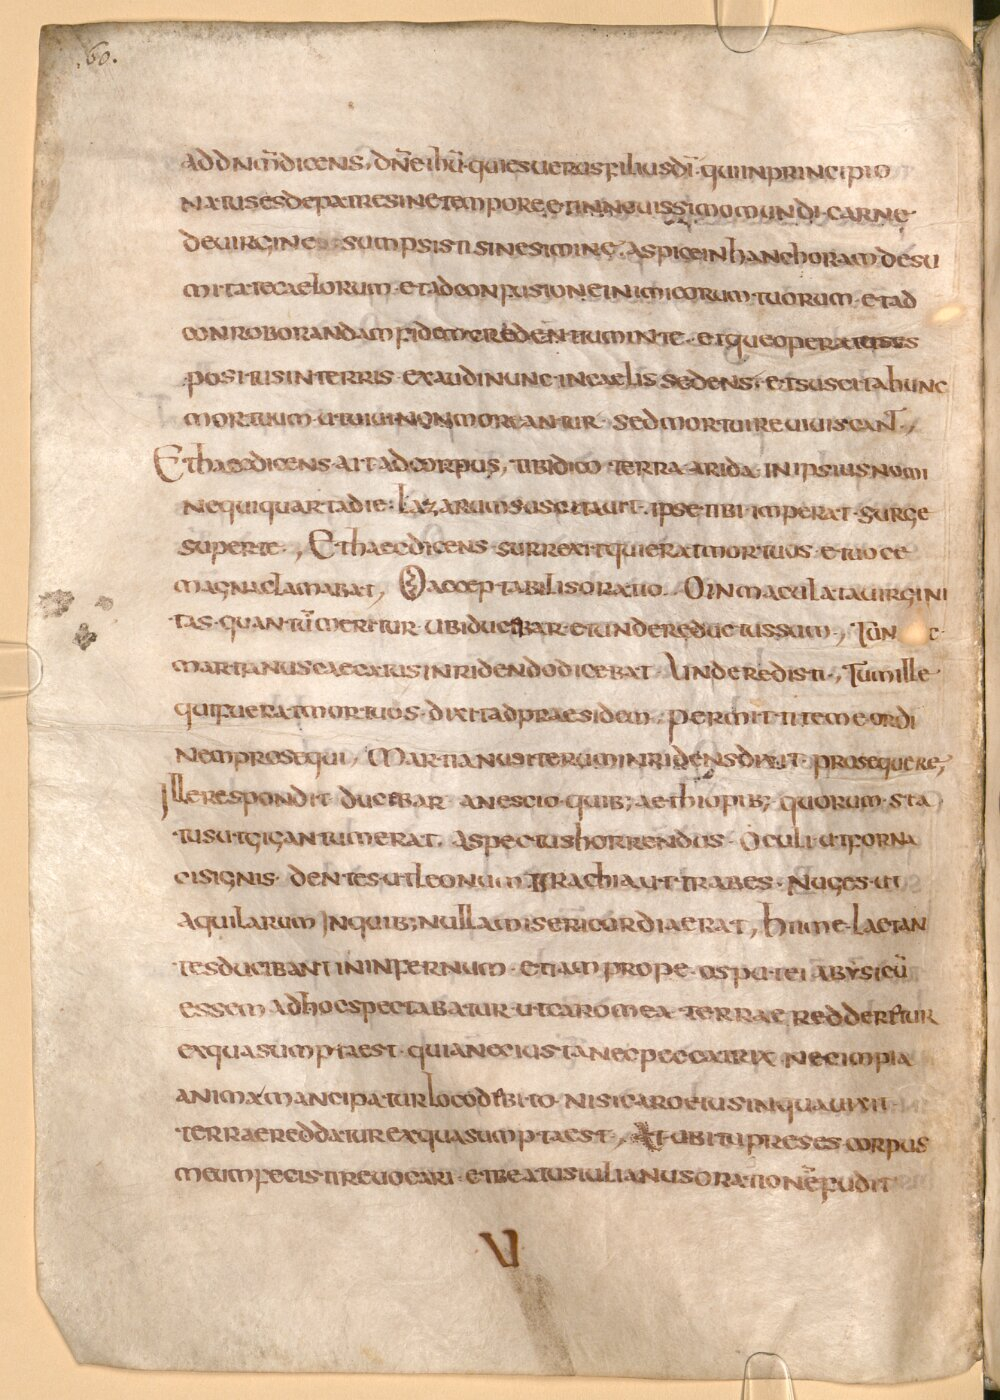 60.
ad dnm̄ dicens, dn̄e ihū· qui es uerus filius dī· qui in principio
natus es de patre sine tempore· et in nouissimo mundi· carnę
de uirgine sumpsisti sine semine. aspice in hanc horam de su
mitate caelorum· et ad confusione inimicorum· tuorum· et ad
conroborandam fidem credentium in te· et que operaturus
positus in terris· exaudi nunc in caelis sedens· et suscita hunc
mortuum· ut uiui non moreantur· sed mortui reuiuiscant.,
Et haec dicens· ait ad corpus, tibi dico· terra arida· in ipsius nomi
ne qui quarta die· lazarum suscitauit· ipse tibi imperat· surge
super te., Et haec dicens· surrexit qui erat mortuos· et uoce
magna clamabat, O acceptabilis oratio. O inmaculata uirgini
tas· quantū meritur· ubi ducebar· et unde reductus sum., Tun c
martianus caecatus inridendo dicebat· Unde redisti., Tum ille
qui fuerat mortuos· dixit ad praesidem· permittite me ordi
nem prosequi, Martianus iterum inridens dixit· prosequere,
Ille respondit ducebar a nescio quib; aethiopib; quorum sta
tus ut gigantum erat. aspectus horrendus· Oculi ut forna
cis ignis· dentes ut leonum· Brachia ut trabes· Nuges ut
aquilarum In quib; nulla misericordia erat, hii me laetan
tes ducibant in infernum· etiam prope os putei abysi cū
essem adhoc spectabatur· ut caro mea terrae redderetur
ex qua sumpta est· quia nec iusta nec peccatrix nec impia
anima mancipatur loco debito· nisi caro eius in qua uixit
terrae reddatur ex qua sumpta est, At ubi tu preses corpus
meum fecisti reuocari· et beatus iulianus orationē fudit
V